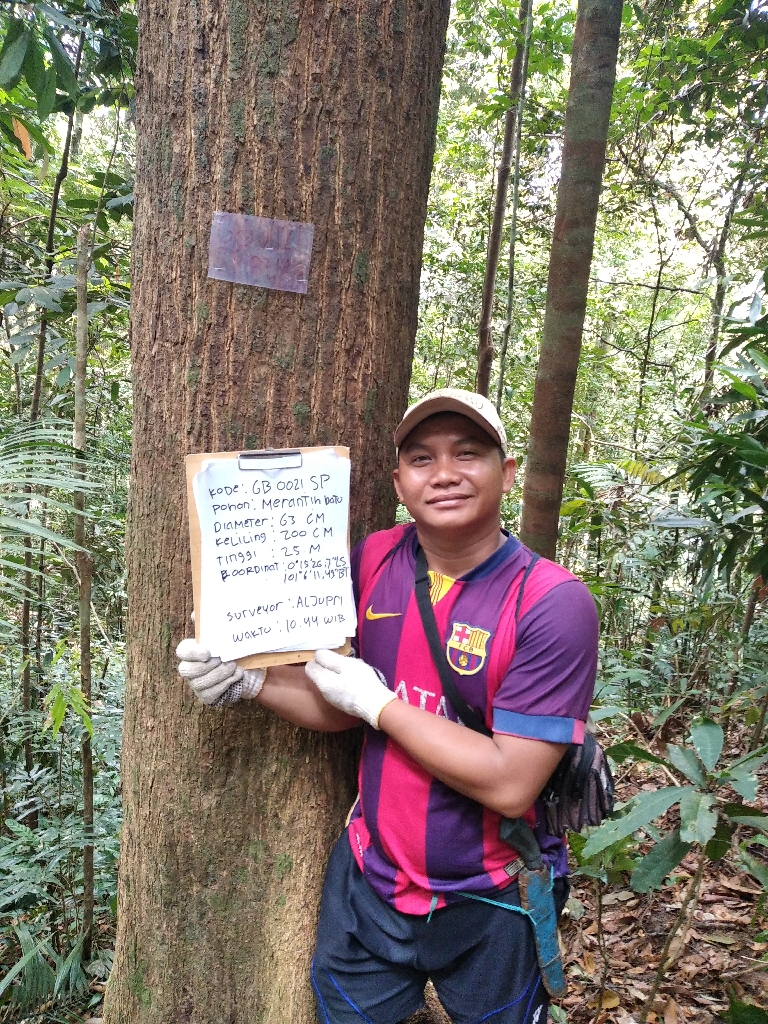 KODE : GB 0021 SP
POHON : Merantih batu
DIAMETER : 63 CM
KELILING : 200 CM
TINGGI : 25 M
KOORDINAT : 0°15'26,7"LS
101°6'11,49"BT
SURVEYOR : ALJUPRI
WAKTU : 10.44 WIB
FCB